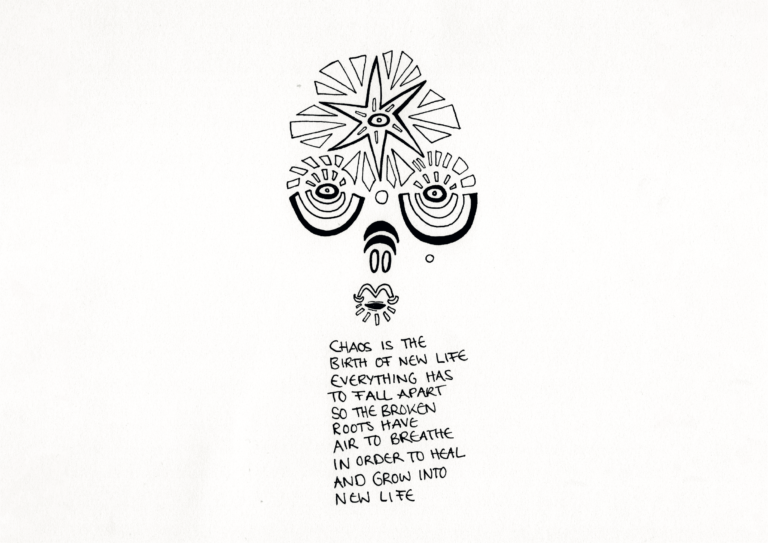 CHAOS IS THE
BIRTH OF NEW LIFE
EVERYTHING HAS
TO FALL APART
SO THE BROKEN
ROOTS HAVE
AIR TO BREATHE
IN ORDER TO HEAL
AND GROW INTO
NEW LIFE